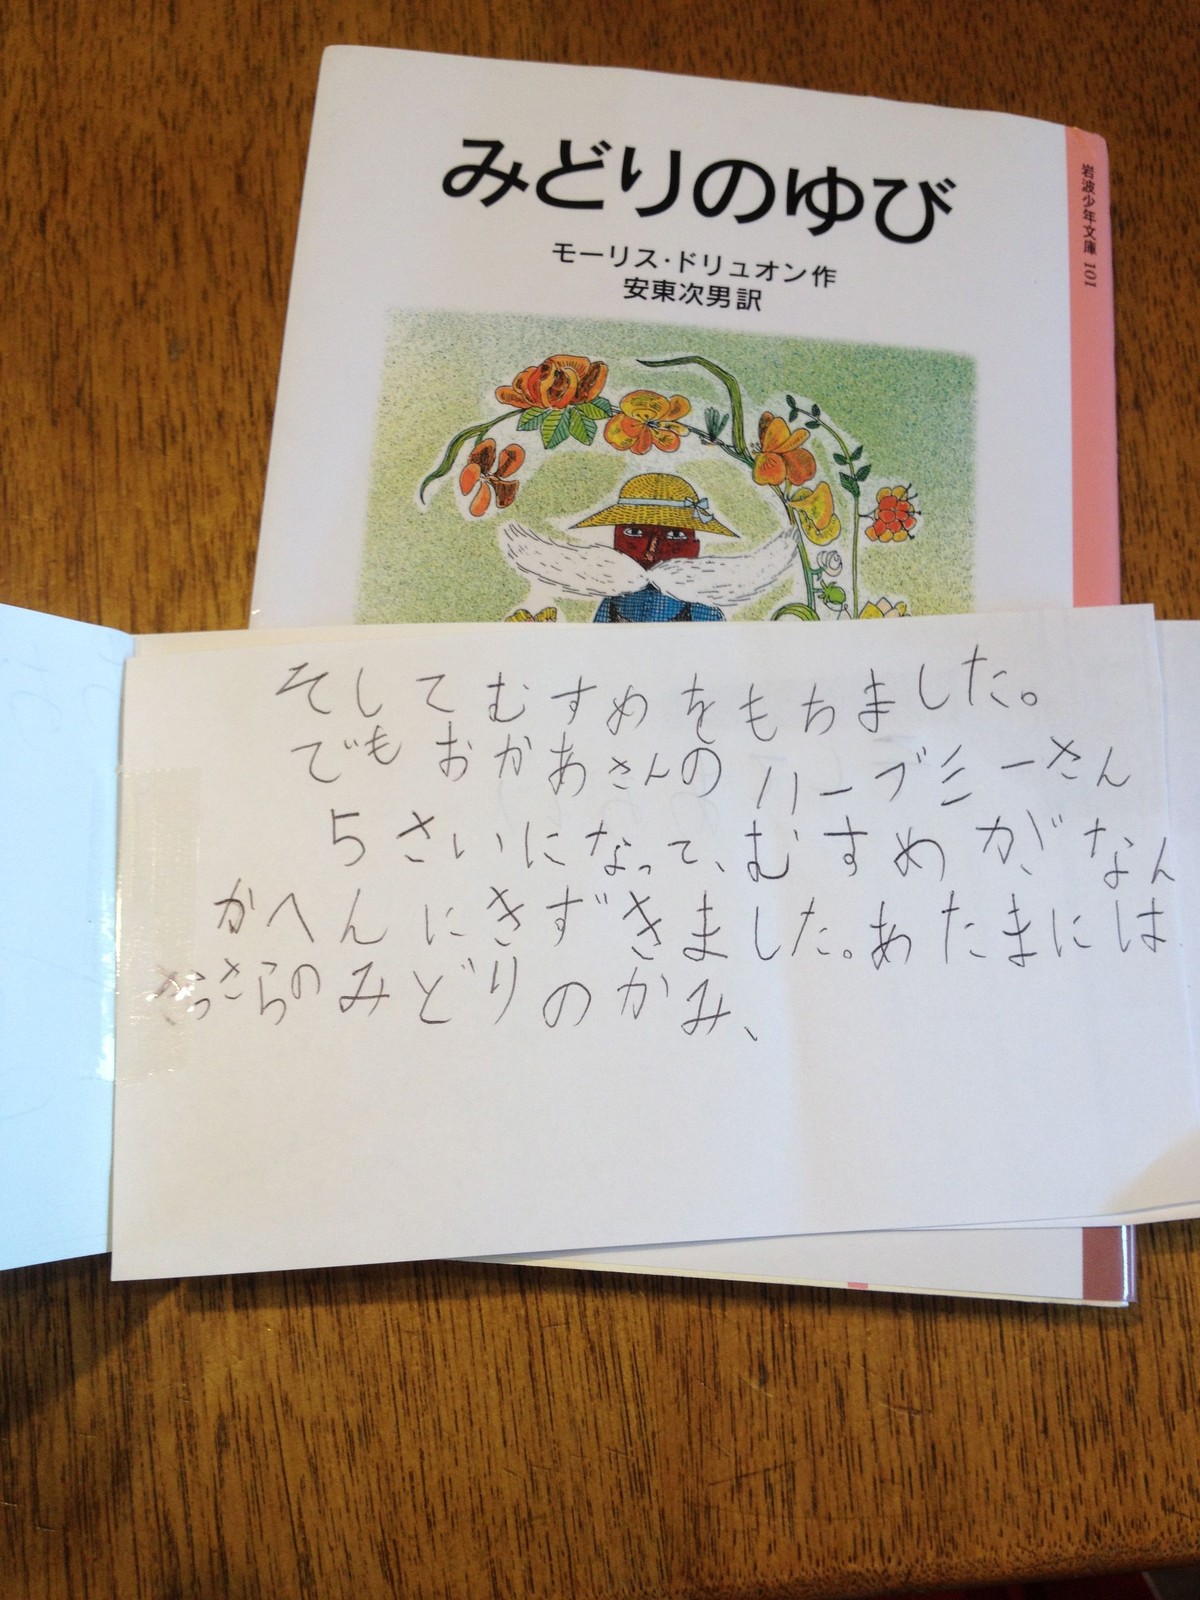 みどりのゆび
モーリス・ドリュオン作
安東次男訳
岩波少年文庫 101
そしてむすめをもちました。
でもおかあさんのハーブミーさん
5さいになって、むすめがなん
かへんにきずきました。あたまには
さらのみどりのかみ、